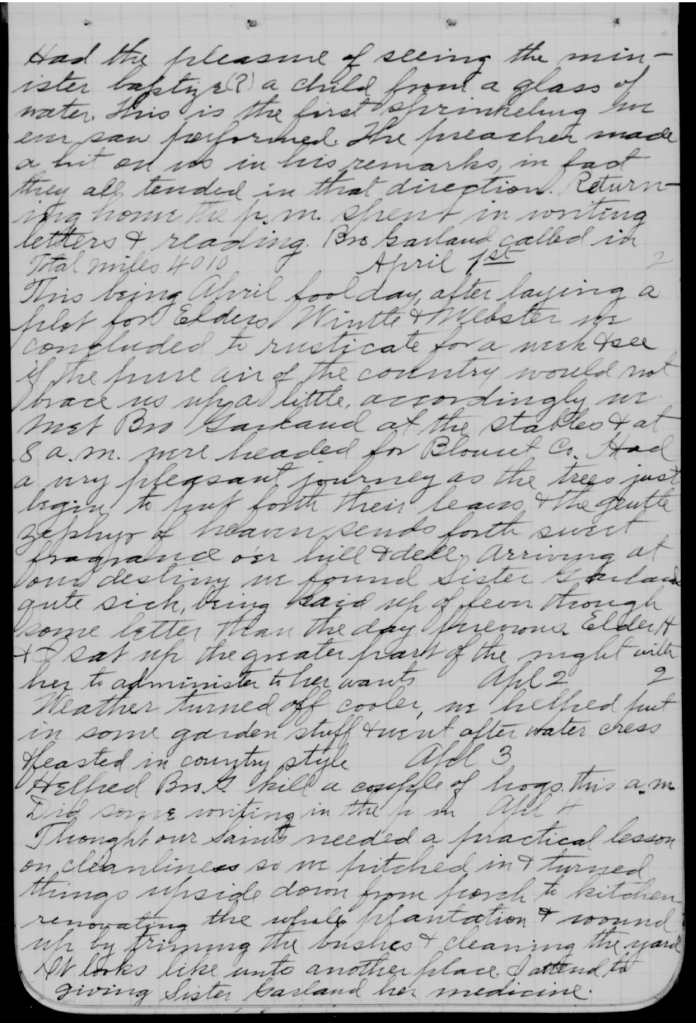 Had the pleasure of seeing the min-
ister baptize(?) a child from a glass of
water. This is the first sprinkeling we
ever saw performed. The preacher made
a hit on us in his remarks, in fact
they all tended in that direction. Return-
ing home the p.m. spent in writing
letters & reading. Bro Garland called in
Total miles 4010 April 1st 2
This being April fool day, after laying a
plot for Elders Wintle & Webster we
concluded to rusticate for a week & see
if the pure air of the country would not
brace us up a little, accordingly we
met Bro Garland at the stables & at
8 a.m. were headed for Blount Co. Had
a very pleasant journey as the trees just
begin to put forth their leaves & the gentle
zephyr of heaven sends forth sweet
fragrance oer hill & dell, Arriving at
our destiny we found Sister Garland
quite sick, being laid up of fever though
some better than the day previous. Elder H
& I sat up the greater part of the night with
her to administer to her wants Apl 2 2
Weather turned off cooler, we helped put
in some garden stuff & went after water cress
& feasted in country style Apl 3
Helped Bro G kill a couple of hogs this a.m.
Did some writing in the p m Apl 4
Thought our Saints needed a practical lesson
on cleanliness so we pitched in & turned
things upside down from porch to kitchen
renovating the whole plantation & wound
up by triming the bushes & cleaning the yard
It looks like unto another place I attend to
giving Sister Garland her medicine.